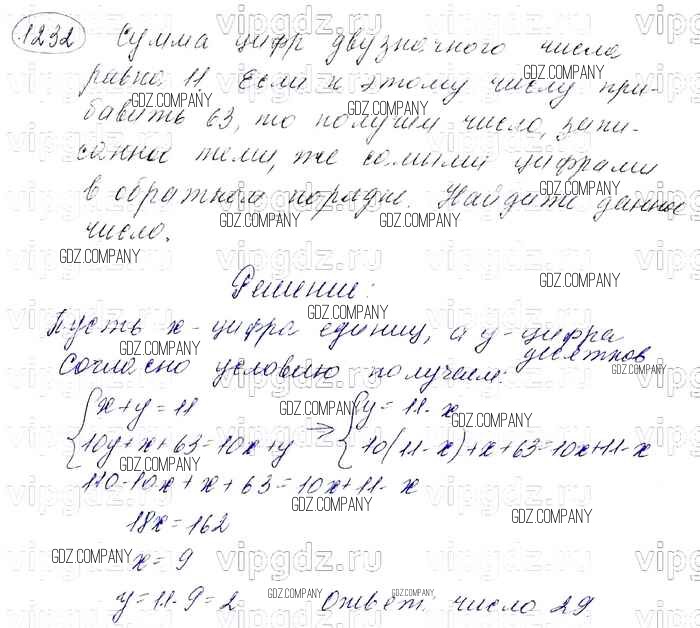 1232 Сумма цифр двузначного числа
равна 11. Если к этому числу при-
бавить 63, то получим число, запи-
санное теми же самыми цифрами
в обратном порядке. Найдите данное
число.
Решение:
Пусть x - цифра единиц, а y - цифра
десятков
Согласно условию получаем:
{x+y=11 → {y=11-x
{10y+x+63=10x+y → {10(11-x)+x+63=10x+11-x
110-10x+x+63=10x+11-x
18x=162
x=9
y=11-9=2 Ответ: число 29
vipgdz.ru
GDZ.COMPANY